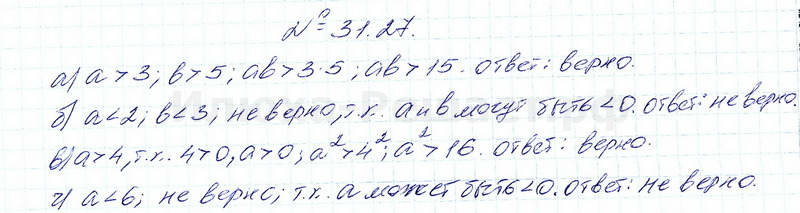 № 31.27.
а) a > 3; b > 5; ab > 3·5; ab > 15. ответ: верно.
б) a < 2; b < 3; не верно, т.к. a и b могут быть < 0. ответ: не верно.
в) a > 4, т.к. 4 > 0, a > 0; a² > 4²; a² > 16. ответ: верно.
г) a < 6; не верно; т.к. a может быть < 0. ответ: не верно.